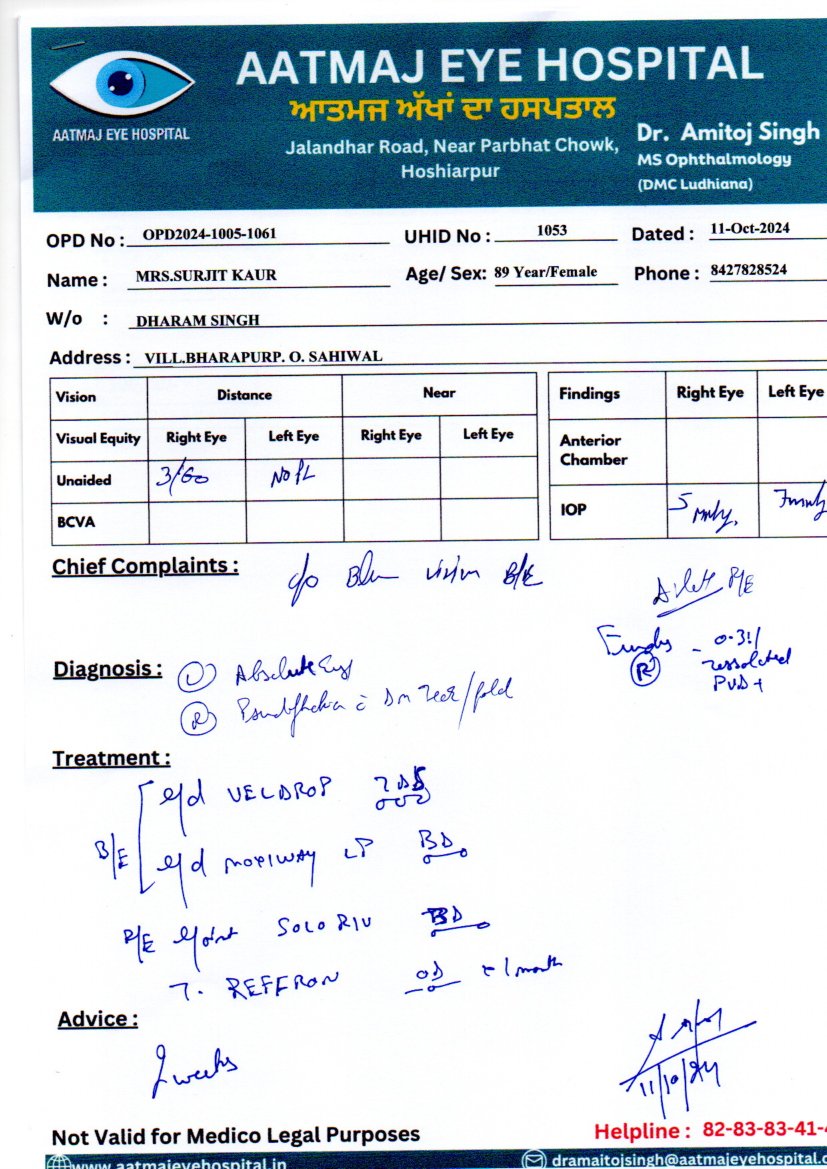 AATMAJ EYE HOSPITAL
ਆਤਮਜ ਅੱਖਾਂ ਦਾ ਹਸਪਤਾਲ
AATMAJ EYE HOSPITAL
Jalandhar Road, Near Parbhat Chowk,
Hoshiarpur
Dr. Amitoj Singh
MS Ophthalmology
(DMC Ludhiana)
OPD No : OPD2024-1005-1061 UHID No : 1053 Dated : 11-Oct-2024
Name : MRS.SURJIT KAUR Age/ Sex: 89 Year/Female Phone : 8427828524
W/o : DHARAM SINGH
Address : VILL.BHARAPURP. O. SAHIWAL
Vision Distance Near
Visual Equity Right Eye Left Eye Right Eye Left Eye
Unaided 3/60 No PL
BCVA
Findings Right Eye Left Eye
Anterior
Chamber
IOP 5 mmHg 7mmHg
Chief Complaints :
c/o Blur vision B/E
Dilate R/E
Fundus - 0.3:1
(R) 
PVD +
Diagnosis :
(L) Absolute Eye
(R) Pseudophakia c Dm Tear/fold
Treatment :
B/E
e/d VELDROP
e/d MOXIWAY LP BD
R/E e/oint SOLORIV BD
T. REFFRON OD x 1 month
Advice :
2 weeks
11/10/24
Not Valid for Medico Legal Purposes
Helpline : 82-83-83-41-
www.aatmajeyehospital.in
dramaitojsingh@aatmajeyehospital.